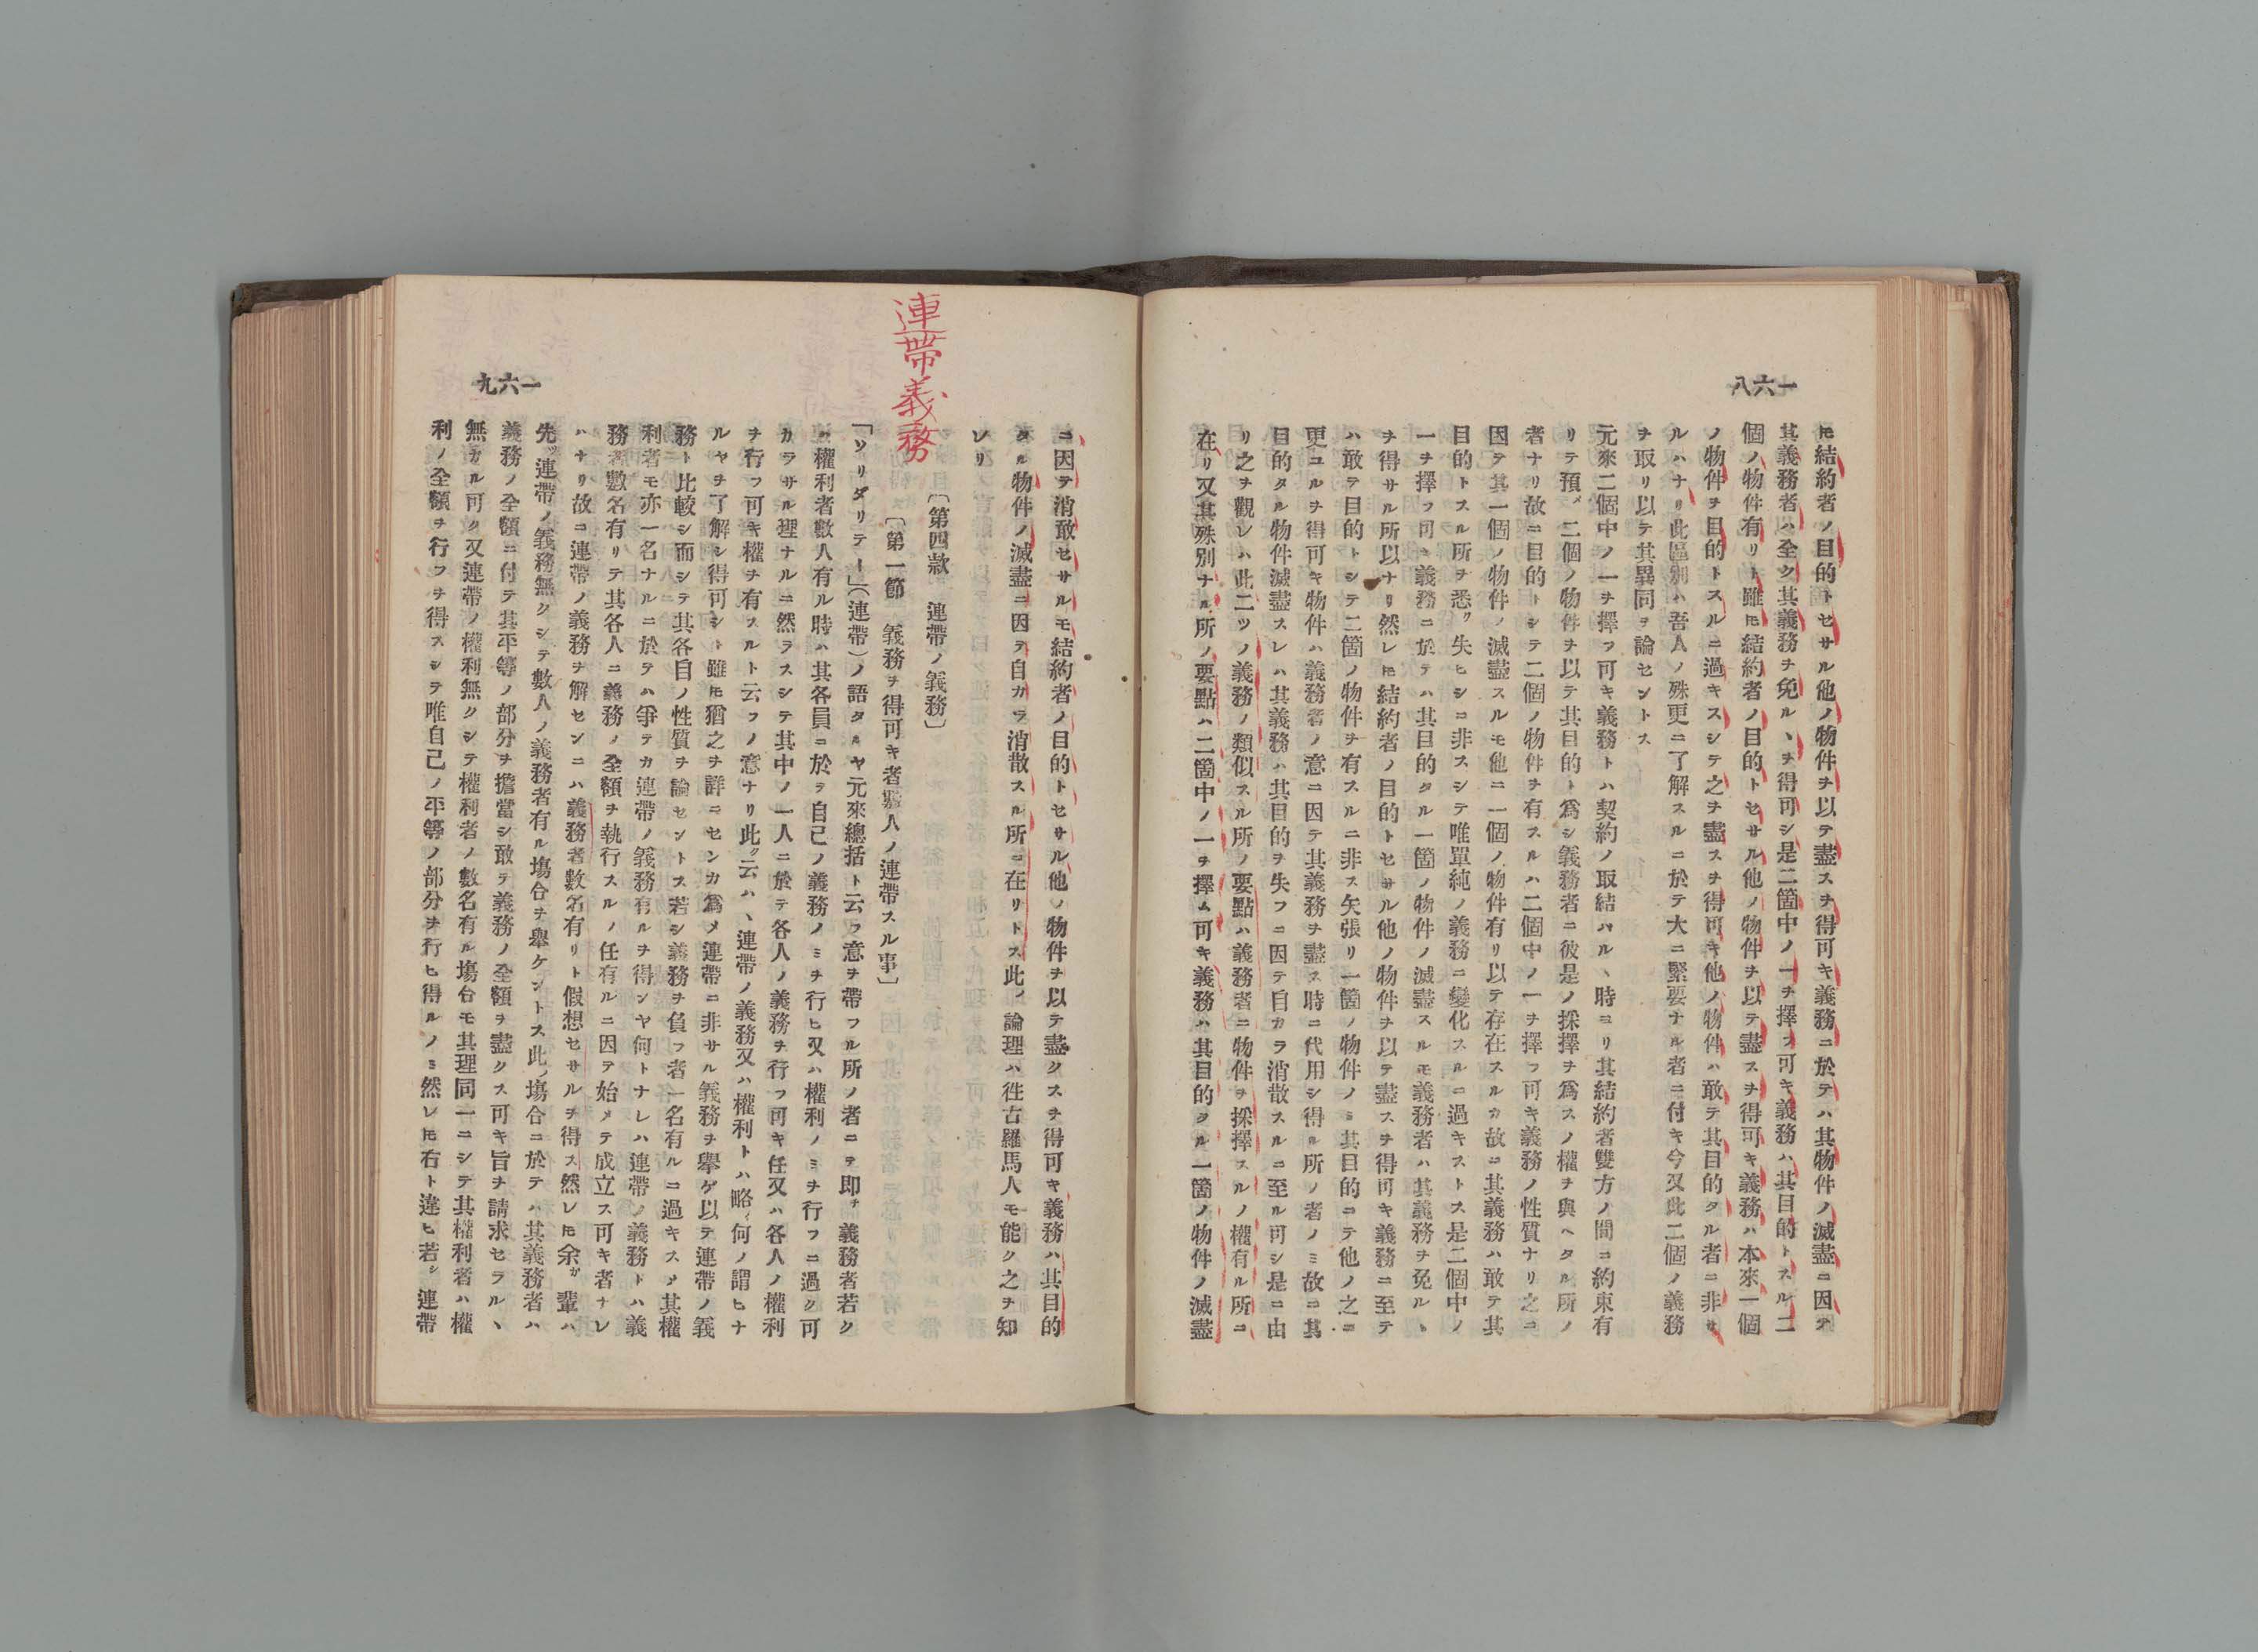 一六八
㪽結約者ノ目的トセサル他ノ物件ヲ以テ盡スヲ得可キ義務ニ於テハ其物件ノ滅盡ニ因テ
其義務者ハ全ク其義務ヲ免ルヽヲ得可シ是二箇中ノ一ヲ擇フ可キ義務ハ其目的トスル二
個ノ物件有リト雖𪜈結約者ノ目的トセサル他ノ物件ヲ以テ盡スヲ得可キ義務ハ本來一個
ノ物件ヲ目的トスルニ過キスシテ之ヲ盡スヲ得可キ他ノ物件ハ敢テ其目的タル者ニ非サ
ルハナリ此區別ハ吾人ノ殊更ニ了解スルニ於テ大ニ緊要ナル者ニ付キ今又此二個ノ義務
ヲ取リ以テ其異同ヲ論セントス
元來二個中ノ一ヲ擇フ可キ義務トハ契約ノ取結ハルヽ時ヨリ其結約者雙方ノ間ニ約束有
リテ預メ二個ノ物件ヲ以テ其目的ト爲シ義務者ニ彼是ノ採擇ヲ爲スノ權ヲ與ヘタル所ノ
者ナリ故ニ目的トシテ二個ノ物件ヲ有スルハ二個中ノ一ヲ擇フ可キ義務ノ性質ナリ之ニ
因テ其一個ノ物件ノ滅盡スルモ他ニ一個ノ物件有リ以テ存在スルカ故ニ其義務ハ敢テ其
目的トスル所ヲ悉ク失ヒシニ非スシテ唯單純ノ義務ニ變化スルニ過キストス是二個中ノ
一ヲ擇フ可キ義務ニ於テハ其目的タル一箇ノ物件ノ滅盡スルモ義務者ハ其義務ヲ免ルヽ
ヲ得サル所以ナリ然レ𪜈結約者ノ目的トセサル他ノ物件ヲ以テ盡スヲ得可キ義務ニ至テ
ハ敢テ目的トシテ二箇ノ物件ヲ有スルニ非ス矢張リ一箇ノ物件ノミ其目的ニテ他ノ之ニ
更ユルヲ得可キ物件ハ義務者ノ意ニ因テ其義務ヲ盡ス時ニ代用シ得ル所ノ者ノミ故ニ其
目的タル物件滅盡スレハ其義務ハ其目的ヲ失フニ因テ自カラ消散スルニ至ル可シ是ニ由
リ之ヲ觀レハ此二ツノ義務ノ類似スル所ノ要點ハ義務者ニ物件ヲ採擇スルノ權有ル所ニ
在リ又其殊別ナル所ノ要點ハ二箇中ノ一ヲ擇ム可キ義務ハ其目的タル一箇ノ物件ノ滅盡
一六九
連帶義務
ニ因テ消散セサルモ結約者ノ目的トセサル他ノ物件ヲ以テ盡クスヲ得可キ義務ハ其目的
タル物件ノ滅盡ニ因テ自カラ消散スル所ニ在リトス此ノ論理ハ徃古羅馬人モ能ク之ヲ知
レリ
〔第四款　連帶ノ義務〕
〔第一節　義務ヲ得可キ者數人ノ連帶スル事〕
「ソリダリテー」（連帶）ノ語タルヤ元來總括ト云フ意ヲ帶フル所ノ者ニテ即チ義務者若ク
ハ權利者數人有ル時ハ其各員ニ於テ自己ノ義務ノミヲ行ヒ又ハ權利ノミヲ行フニ過ク可
カラサル理ナルニ然ラスシテ其中ノ一人ニ於テ各人ノ義務ヲ行フ可キ任又ハ各人ノ權利
ヲ行フ可キ權ヲ有スルト云フノ意ナリ此ク云ハヽ連帶ノ義務又ハ權利トハ略ホ何ノ謂ヒナ
ルヤヲ了解シ得可シト雖𪜈猶之ヲ詳ニセンカ爲メ連帶ニ非サル義務ヲ擧ゲ以テ連帶ノ義
務ト比較シ而シテ其各自ノ性質ヲ論セントス若シ義務ヲ負フ者一名有ルニ過キス又其權
利者モ亦一名ナルニ於テハ爭テカ連帶ノ義務有ルヲ得ンヤ何トナレハ連帶ノ義務トハ義
務者數名有リテ其各人ニ義務ノ全額ヲ執行スルノ任有ルニ因テ始メテ成立ス可キ者ナレ
ハナリ故ニ連帶ノ義務ヲ解センニハ義務者數名有リト假想セサルヲ得ス然レ𪜈余ガ輩ハ
先ツ連帶ノ義務無クシテ數人ノ義務者有ル塲合ヲ擧ケントス此ノ塲合ニ於テハ其義務者ハ
義務ノ全額ニ付テ其平等ノ部分ヲ擔當シ敢テ義務ノ全額ヲ盡クス可キ旨ヲ請求セラルヽ
無カル可ク又連帶ノ權利無クシテ權利者ノ數名有ル塲合モ其理同一ニシテ其權利者ハ權
利ノ全額ヲ行フヲ得スシテ唯自己ノ平等ノ部分ヲ行ヒ得ルノミ然レ𪜈右ト違ヒ若シ連帶